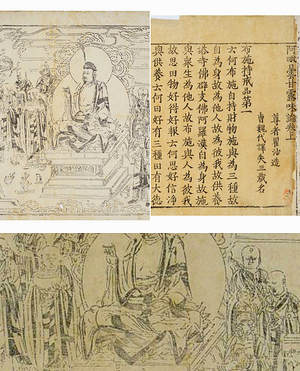 阿毗曇甘露味論卷上
尊者瞿沙造
曹魏代譯失三藏名
布施持戒品第一
云何布施自持財物施與為三種故
自為身故為他人故為彼我故供養
塔寺佛辟支佛阿羅漢自為身故施
與眾生為他人故施與人為彼我故
故思田物好得好報云何思好信淨
與供養云何田好有三種田有大德